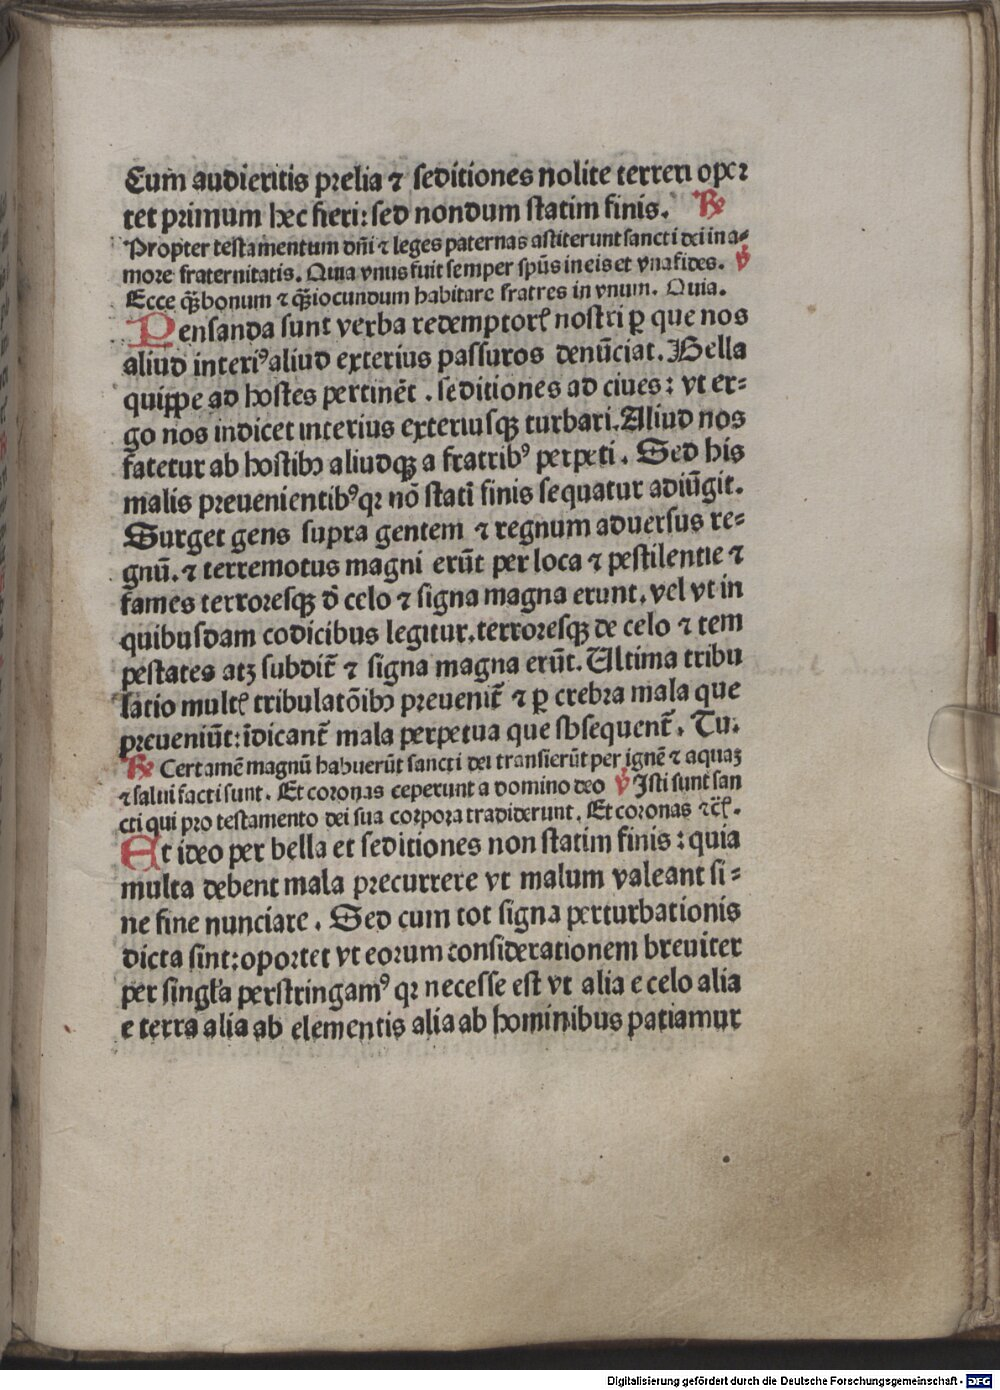 Cum audieritis prelia ⁊ seditiones nolite terreri opor
tet primum hec fieri: sed nondum statim finis. ℟
Propter testamentum dn̄i ⁊ leges paternas astiterunt sancti dei in a⸗
more fraternitatis. Quia vnus fuit semper sp̄us in eis et vna fides. ℣
Ecce q̄ꝫ bonum ⁊ q̄ꝫ iocundum habitare fratres in vnum. Quia.
Pensanda sunt verba redemptorꝭ nostri ꝑ que nos
aliud interiꝰ aliud exterius passuros denūciat. Bella
quippe ad hostes pertinēt. seditiones ad ciues: vt er⸗
go nos indicet interius exteriusqꝫ turbari. Aliud nos
fatetur ab hostibꝫ aliudqꝫ a fratribꝰ perpeti. Sed his
malis preuenientibꝰ qꝛ nō stati finis sequatur adiūgit.
Surget gens supra gentem ⁊ regnum aduersus re⸗
gnū. ⁊ terremotus magni erūt per loca ⁊ pestilentie ⁊
fames terroresqꝫ d̄ celo ⁊ signa magna erunt. vel vt in
quibusdam codicibus legitur. terroresqꝫ de celo ⁊ tem
pestates atꝫ subdit̄ ⁊ signa magna erūt. Ultima tribu
latio multꝭ tribulatōibꝫ preuenit̄ ⁊ ꝑ crebra mala que
preueniūt: īdicant̄ mala perpetua que sbsequent̄. Tu.
℟ Certamē magnū habuerūt sancti dei transierūt per ignē ⁊ aquaꝫ
⁊ salui facti sunt. Et coronas ceperunt a domino deo ℣ Isti sunt san
cti qui pro testamento dei sua corpora tradiderunt. Et coronas ⁊cꝭ.
Et ideo per bella et seditiones non statim finis: quia
multa debent mala precurrere vt malum valeant si⸗
ne fine nunciare. Sed cum tot signa perturbationis
dicta sint: oportet vt eorum considerationem breuiter
per singl̄a perstringamꝰ qꝛ necesse est vt alia e celo alia
e terra alia ab elementis alia ab hominibus patiamur
Digitalisierung gefördert durch die Deutsche Forschungsgemeinschaft - DFG